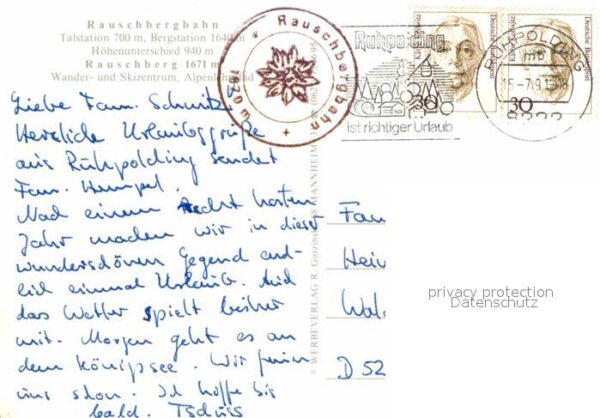 Rauschbergbahn
Talstation 700 m, Bergstation 1640 m
Höhenunterschied 940 m
Rauschberg 1671 m
Wander- und Skizentrum, Alpenlehrpfad
Rauschbergbahn
1670 m
Ruhpolding
ist richtiger Urlaub
RUHPOLDING
mb
-7.9
8222
Deutsche Bundespost
30
Deutsche Bundespost
30
Liebe Fam. Schmitz
Herzliche Urlaubsgrüße
aus Rühpolding sendet
Fam. Hempel.
Nach einem recht harten
Jahr machen wir in dieser
wunderschönen Gegend end-
lich einmal Urlaub. Auch
das Wetter spielt bisher
mit. Morgen geht es an
den Königsee. Wir freuen
uns schon. Ich hoffe bis
bald. Tschüss
© WERBEVERLAG R. MANNHEIM
Fam
Hein
Wal
D 52
privacy protection
Datenschutz